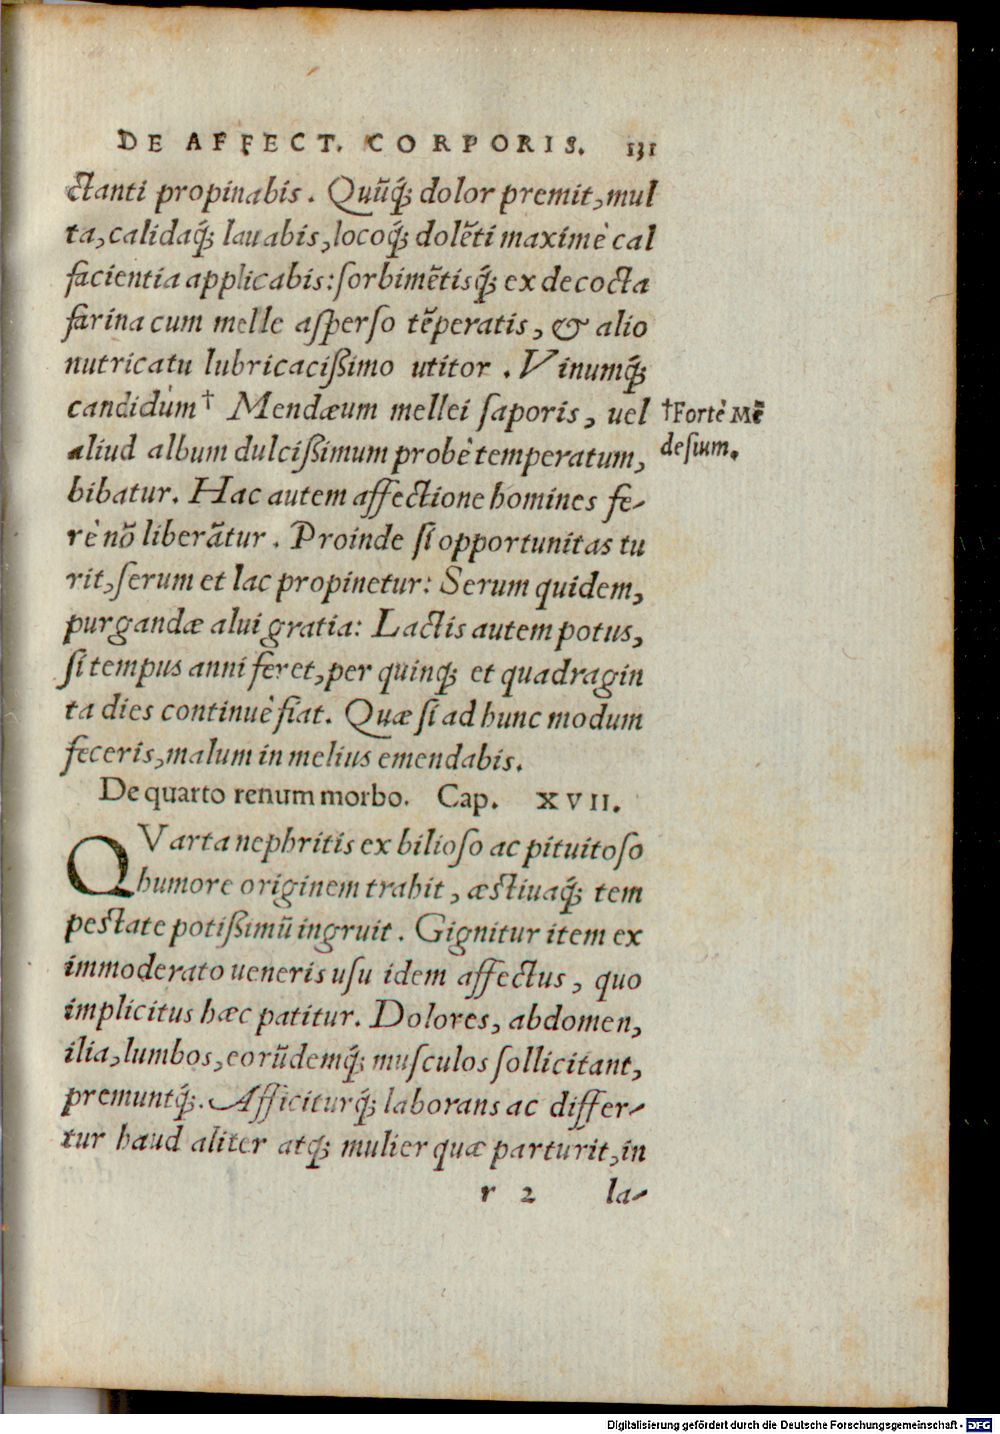 DE AFFECT. CORPORIS. 131
ctanti propinabis. Quũq́; dolor premit, mul
ta, calidaq́; lauabis, locoq́; dolẽti maximè cal
facientia applicabis: ſorbimẽtisq́; ex decocta
farina cum melle aſperſo tẽperatis, & alio
nutricatu lubricacißimo utitor. Vinumq́;
candidùm† Mendæum mellei ſaporis, uel
†Fortè Mẽ
deſium.
aliud album dulcißimum probè temperatum,
bibatur. Hac autem affectione homines fe-
rè nõ liberãtur. Proinde ſi opportunitas tu
rit, ſerum et lac propinetur: Serum quidem,
purgandæ alui gratia: Lactis autem potus,
ſi tempus anni feret, per quinq; et quadragin
ta dies continuè fiat. Quæ ſi ad hunc modum
feceris, malum in melius emendabis.
De quarto renum morbo. Cap. XVII.
QVarta nephritis ex bilioſo ac pituitoſo
humore originem trahit, æſtiuaq́; tem
peſtate potißimũ ingruit. Gignitur item ex
immoderato ueneris uſu idem affectus, quo
implicitus hæc patitur. Dolores, abdomen,
ilia, lumbos, eorũdemq́; muſculos ſollicitant,
premuntq́;. Afficiturq́; laborans ac differ-
tur haud aliter atq; mulier quæ parturit, in
r 2 la-
Digitalisierung gefördert durch die Deutsche Forschungsgemeinschaft - DFG